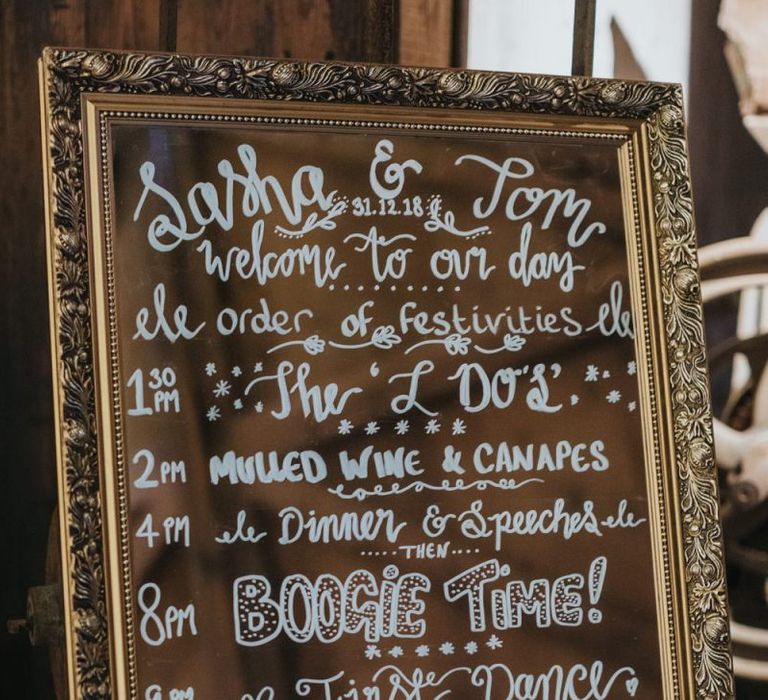 Sasha & Tom
31.12.18
welcome to our day
order of festivities
1 30 PM The 'I DO'S'
2 PM MULLED WINE & CANAPES
4 PM Dinner & Speeches
THEN
8PM BOOGIE TIME!
9PM First Dance